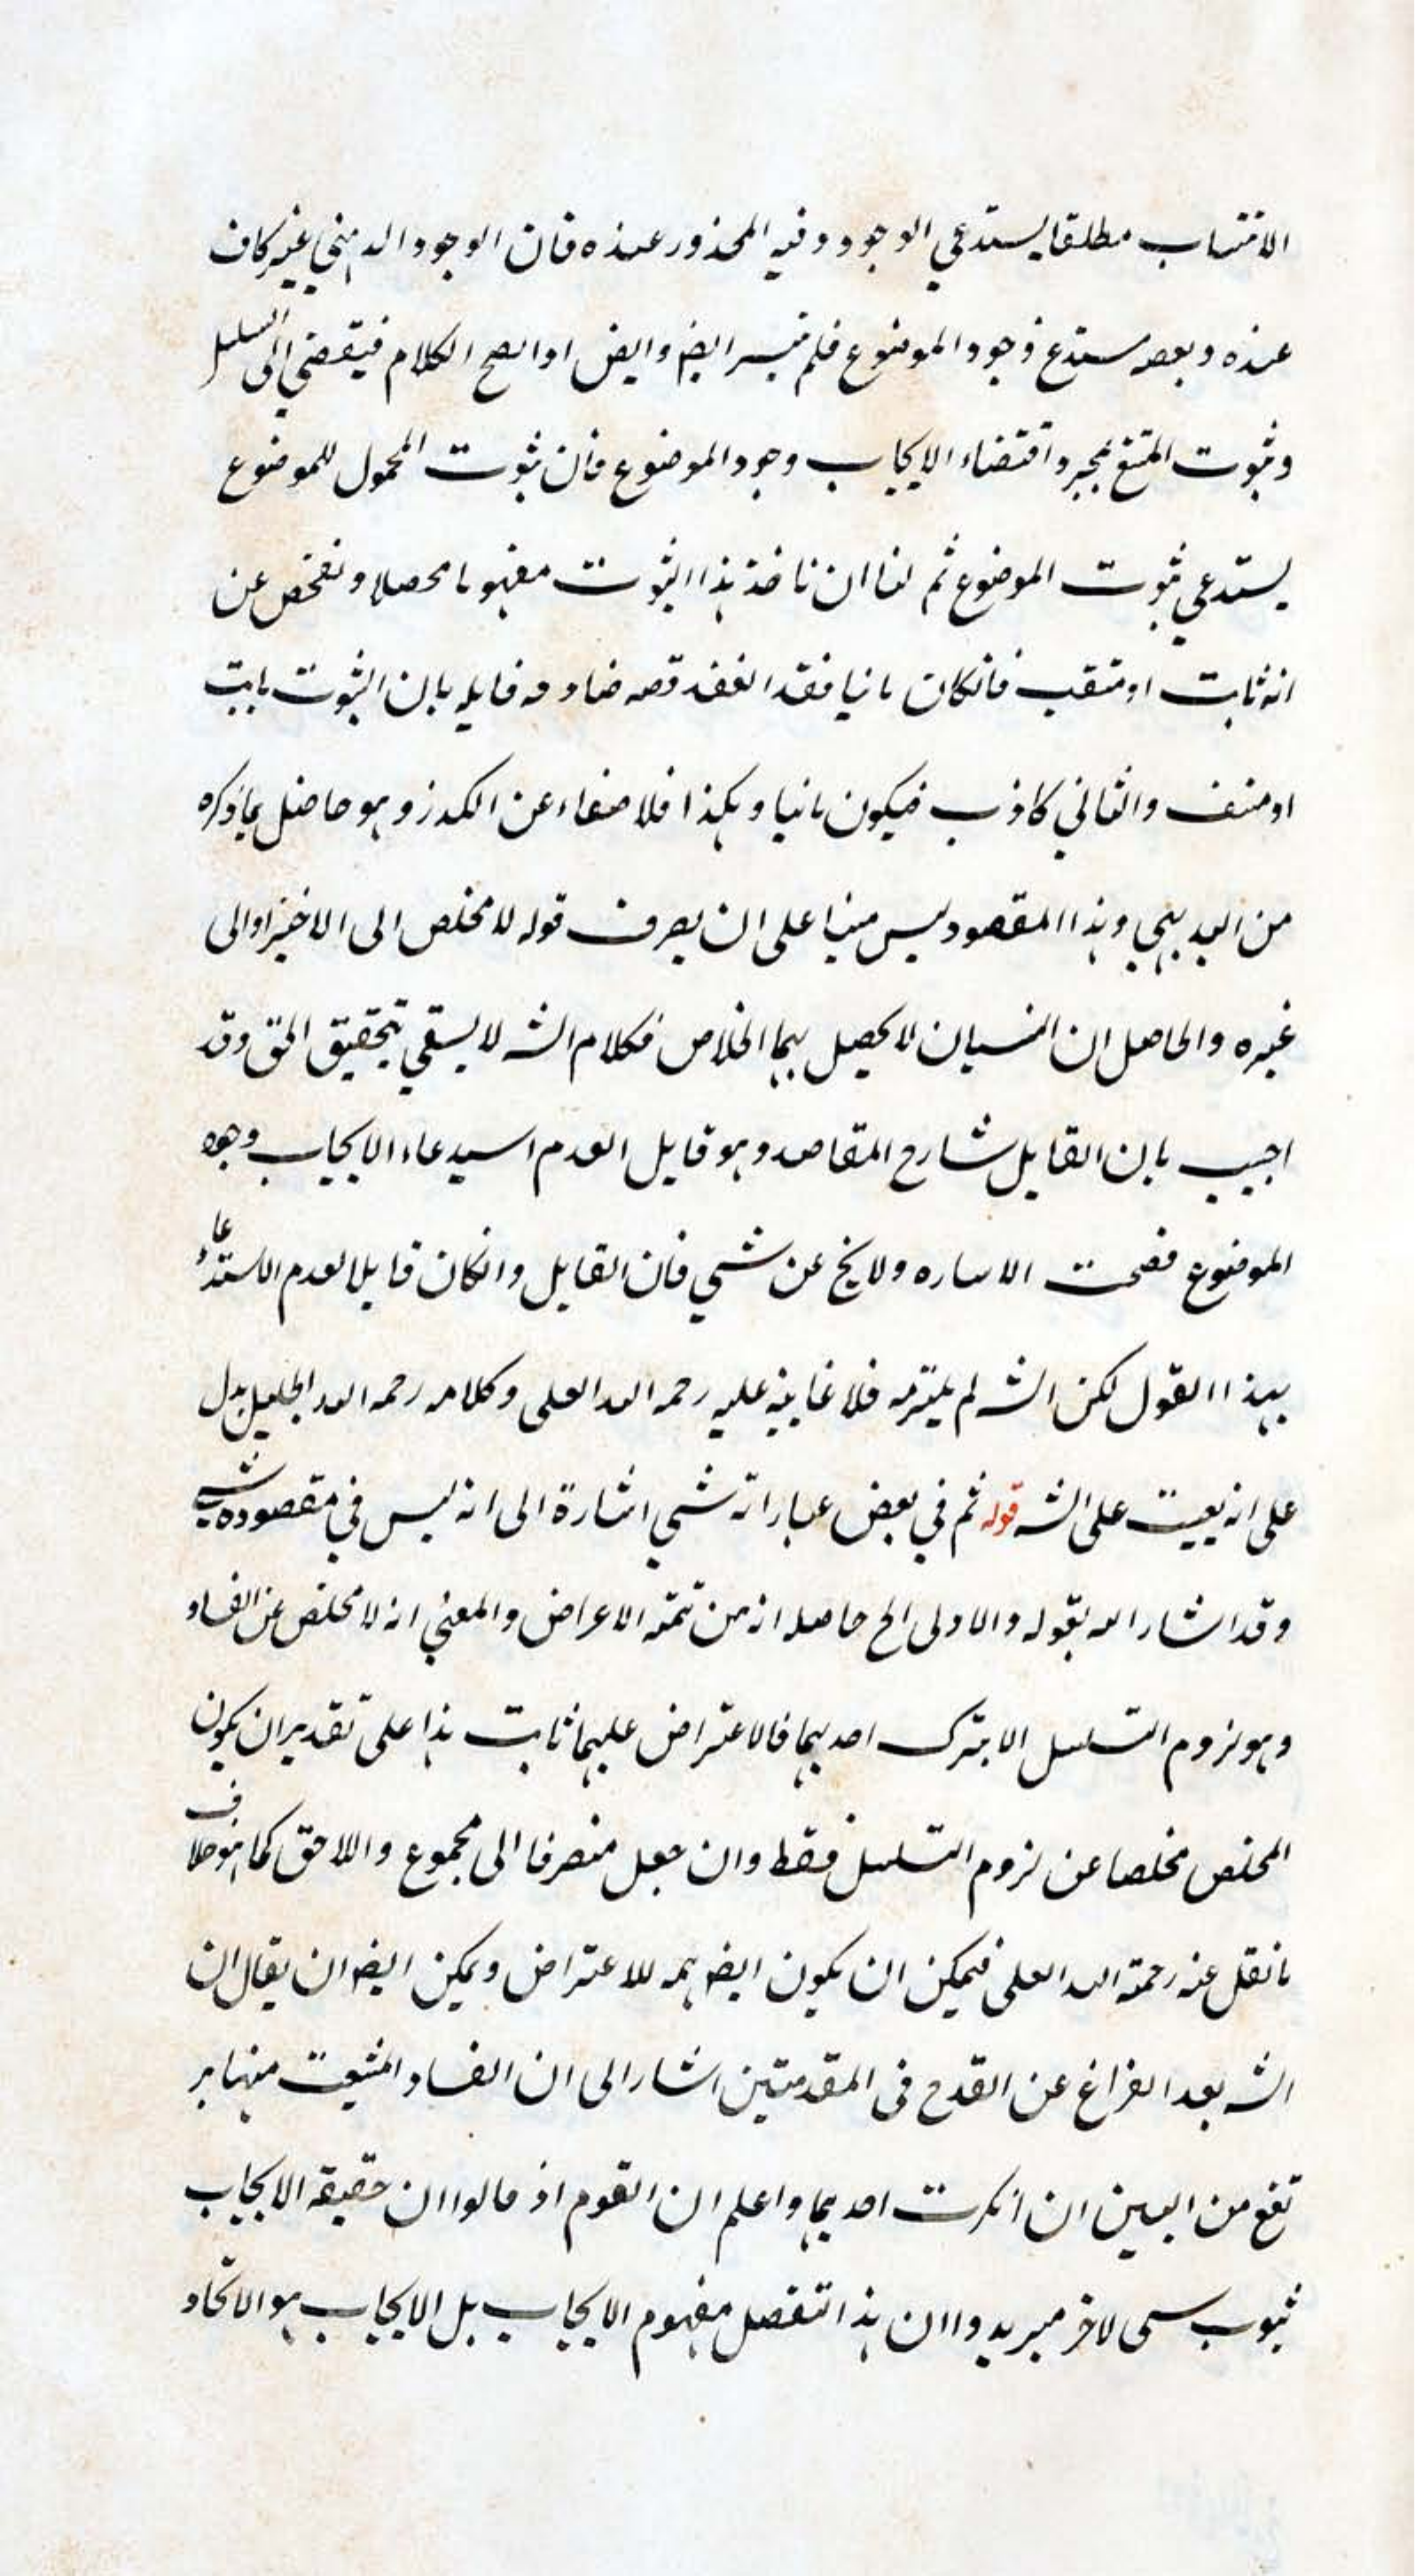 الانتساب مطلقا يستدعي الوجود وفيه المحذور عنده فان الوجود الذهني غير كاف
عنده وبعضه مستدع وجود الموضوع فلم يتيسر ايض وايض اوا يصح الكلام فيقضي الى التسلسل
وثبوت الممتنع بمجرد اقتضاء الايجاب وجود الموضوع فان ثبوت المحمول للموضوع
يستدعي ثبوت الموضوع ثم لنا ان ناخذ هذا الثبوت مفهوما محصلا ونفحص عن
انه ثابت او منتف فانكان ثانيا فقد انعقد قضيه صادقه قايله بان الثبوت ثابت
او منتف والثاني كاذب فيكون ثانيا وهكذا فلا صفاء عن الكدر وهو حاصل ما ذكره
من البديهي وهذا المقصود ليس مبنيا على ان يصرف قوله لا مخلص الى الاخير او الى
غيره والحاصل ان المنسيان لا يحصل بهما الخلاص فكلام الشه لا يسقي بتحقيق الحق وقد
اجيب بان القايل شارح المقاصد وهو قايل لعدم استدعاء الايجاب وجود
الموضوع فصحت الاشاره ولا يخ عن شي فان القايل وانكان قايلا لعدم الاستدعاء
بهذا القول لكن الشه لم يلتزمه فلا غاينه عليه رحمه الله العلى وكلامه رحمه الله الجليل يدل
على انه يعيت على الشه قوله ثم في بعض عباراته شي اشارة الى انه ليس في مقصوده شي
وقد اشار اليه بقوله والاولى الخ حاصله انه من تتمه الاعراض والمعني انه لا مخلص عن الفساد
وهو لزوم التسلسل الا بترك احديهما فالاعتراض عليهما ثابت هذا على تقدير ان يكون
المخلص مخلصا عن لزوم التسلسل فقط وان جعل منصرفا الى مجموع واللاحق كما هو خلاف
ما نقل عنه رحمة الله العلى فيمكن ان يكون ايضه تتمه للاعتراض ويمكن ايضه ان يقال ان
الشه بعد الفراغ عن القدح في المقدمتين اشار الى ان الفساد المثبعت منهما ير
تفع من البين ان انكرت احديهما واعلم ان القوم اذ قالوا ان حقيقه الايجاب
ثبوب سى لاخر ميريدوا ان هذا تفصل مفهوم الايجاب بل الايجاب هو الاتحاد